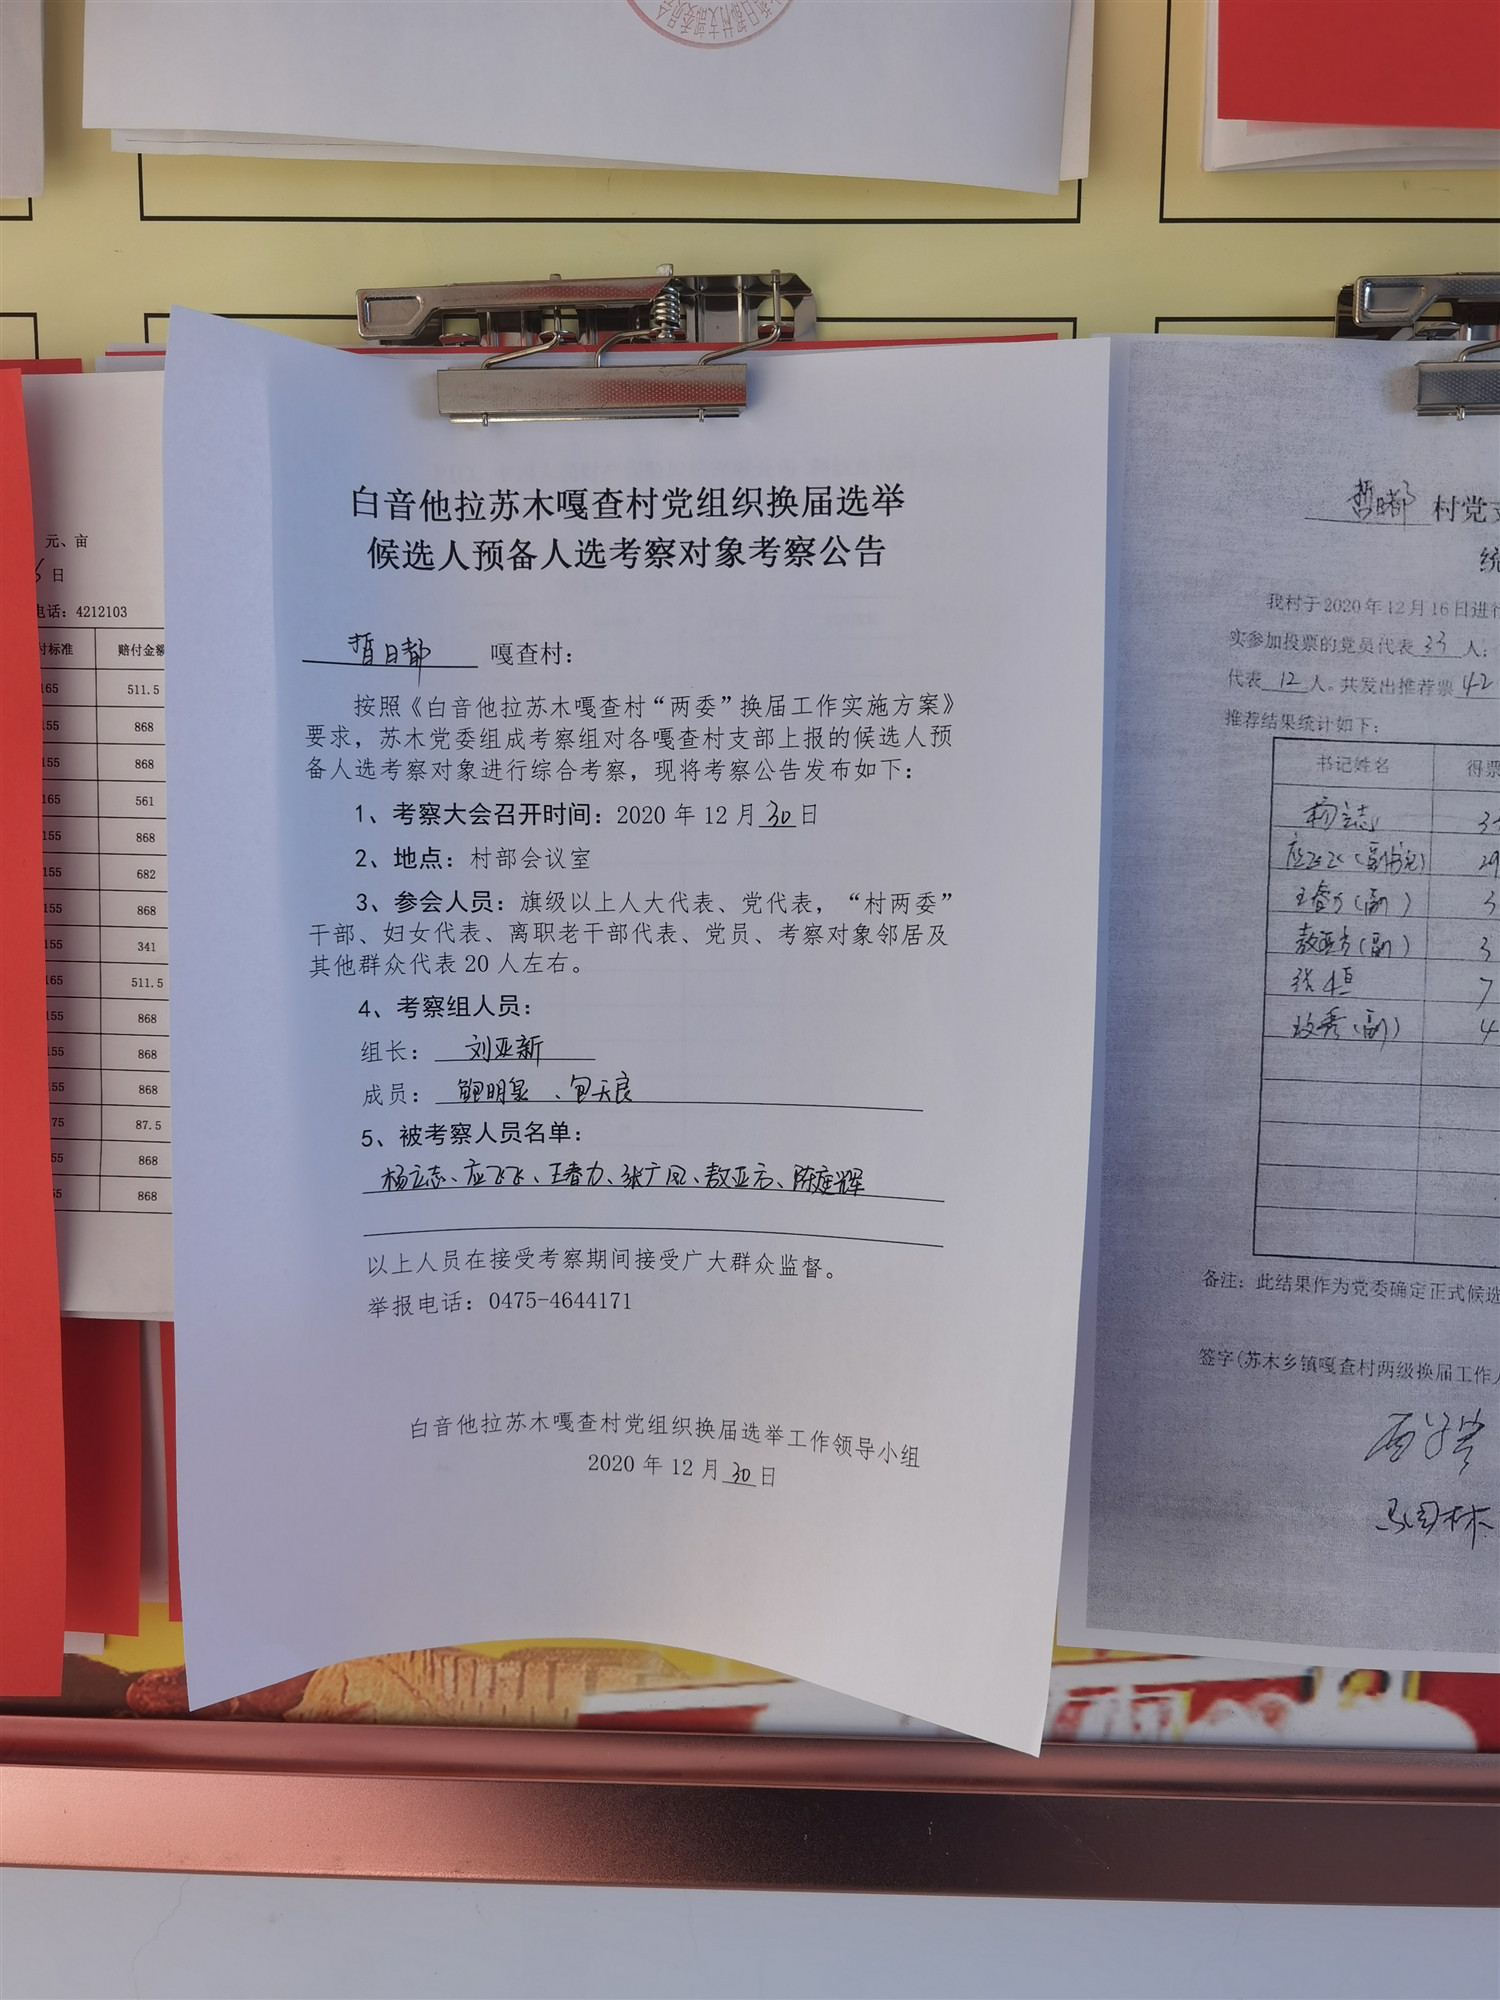 白音他拉苏木嘎查村党组织换届选举
候选人预备人选考察对象考察公告
哲日都 嘎查村：
按照《白音他拉苏木嘎查村“两委”换届工作实施方案》
要求，苏木党委组成考察组对各嘎查村支部上报的候选人预
备人选考察对象进行综合考察，现将考察公告发布如下：
1、考察大会召开时间：2020年12月30日
2、地点：村部会议室
3、参会人员：旗级以上人大代表、党代表，“村两委”
干部、妇女代表、离职老干部代表、党员、考察对象邻居及
其他群众代表20人左右。
4、考察组人员：
组长：刘亚新
成员：鲍明泉、包天良
5、被考察人员名单：
杨立志、应飞飞、王春力、张广凤、敖亚方、陈庭辉
以上人员在接受考察期间接受广大群众监督。
举报电话：0475-4644171
白音他拉苏木嘎查村党组织换届选举工作领导小组
2020年12月30日
元、亩
日
电话：4212103
付标准 赔付金额
165 511.5
155 868
155 868
165 561
155 868
155 682
155 868
155 341
165 511.5
155 868
155 868
55 868
75 87.5
55 868
55 868
哲日都 村党支
统
我村于2020年12月16日进行
实参加投票的党员代表33人；
代表12人。共发出推荐票42
推荐结果统计如下：
书记姓名 得票
杨立志
应飞飞（副书记） 29
王春力（副） 3
敖亚方（副） 3
张恒 7
玫秀（副） 4
备注：此结果作为党委确定正式候选
签字(苏木乡镇嘎查村两级换届工作人